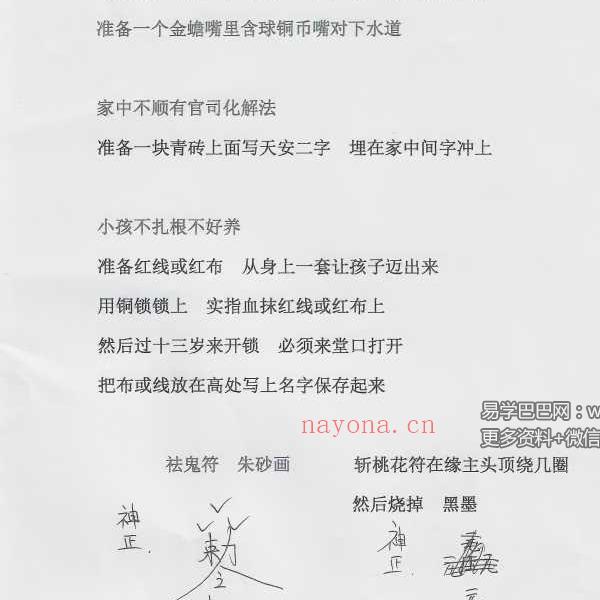 准备一个金蟾嘴里含球铜币嘴对下水道
家中不顺有官司化解法
准备一块青砖上面写天安二字　埋在家中间字冲上
小孩不扎根不好养
准备红线或红布　从身上一套让孩子迈出来
用铜锁锁上　实指血抹红线或红布上
然后过十三岁来开锁　必须来堂口打开
把布或线放在高处写上名字保存起来
易学巴巴网：w
更多资料+微信
nayona.cn
祛鬼符　朱砂画
斩桃花符在缘主头顶绕几圈
然后烧掉　黑墨
神
正.
敕
神
正.